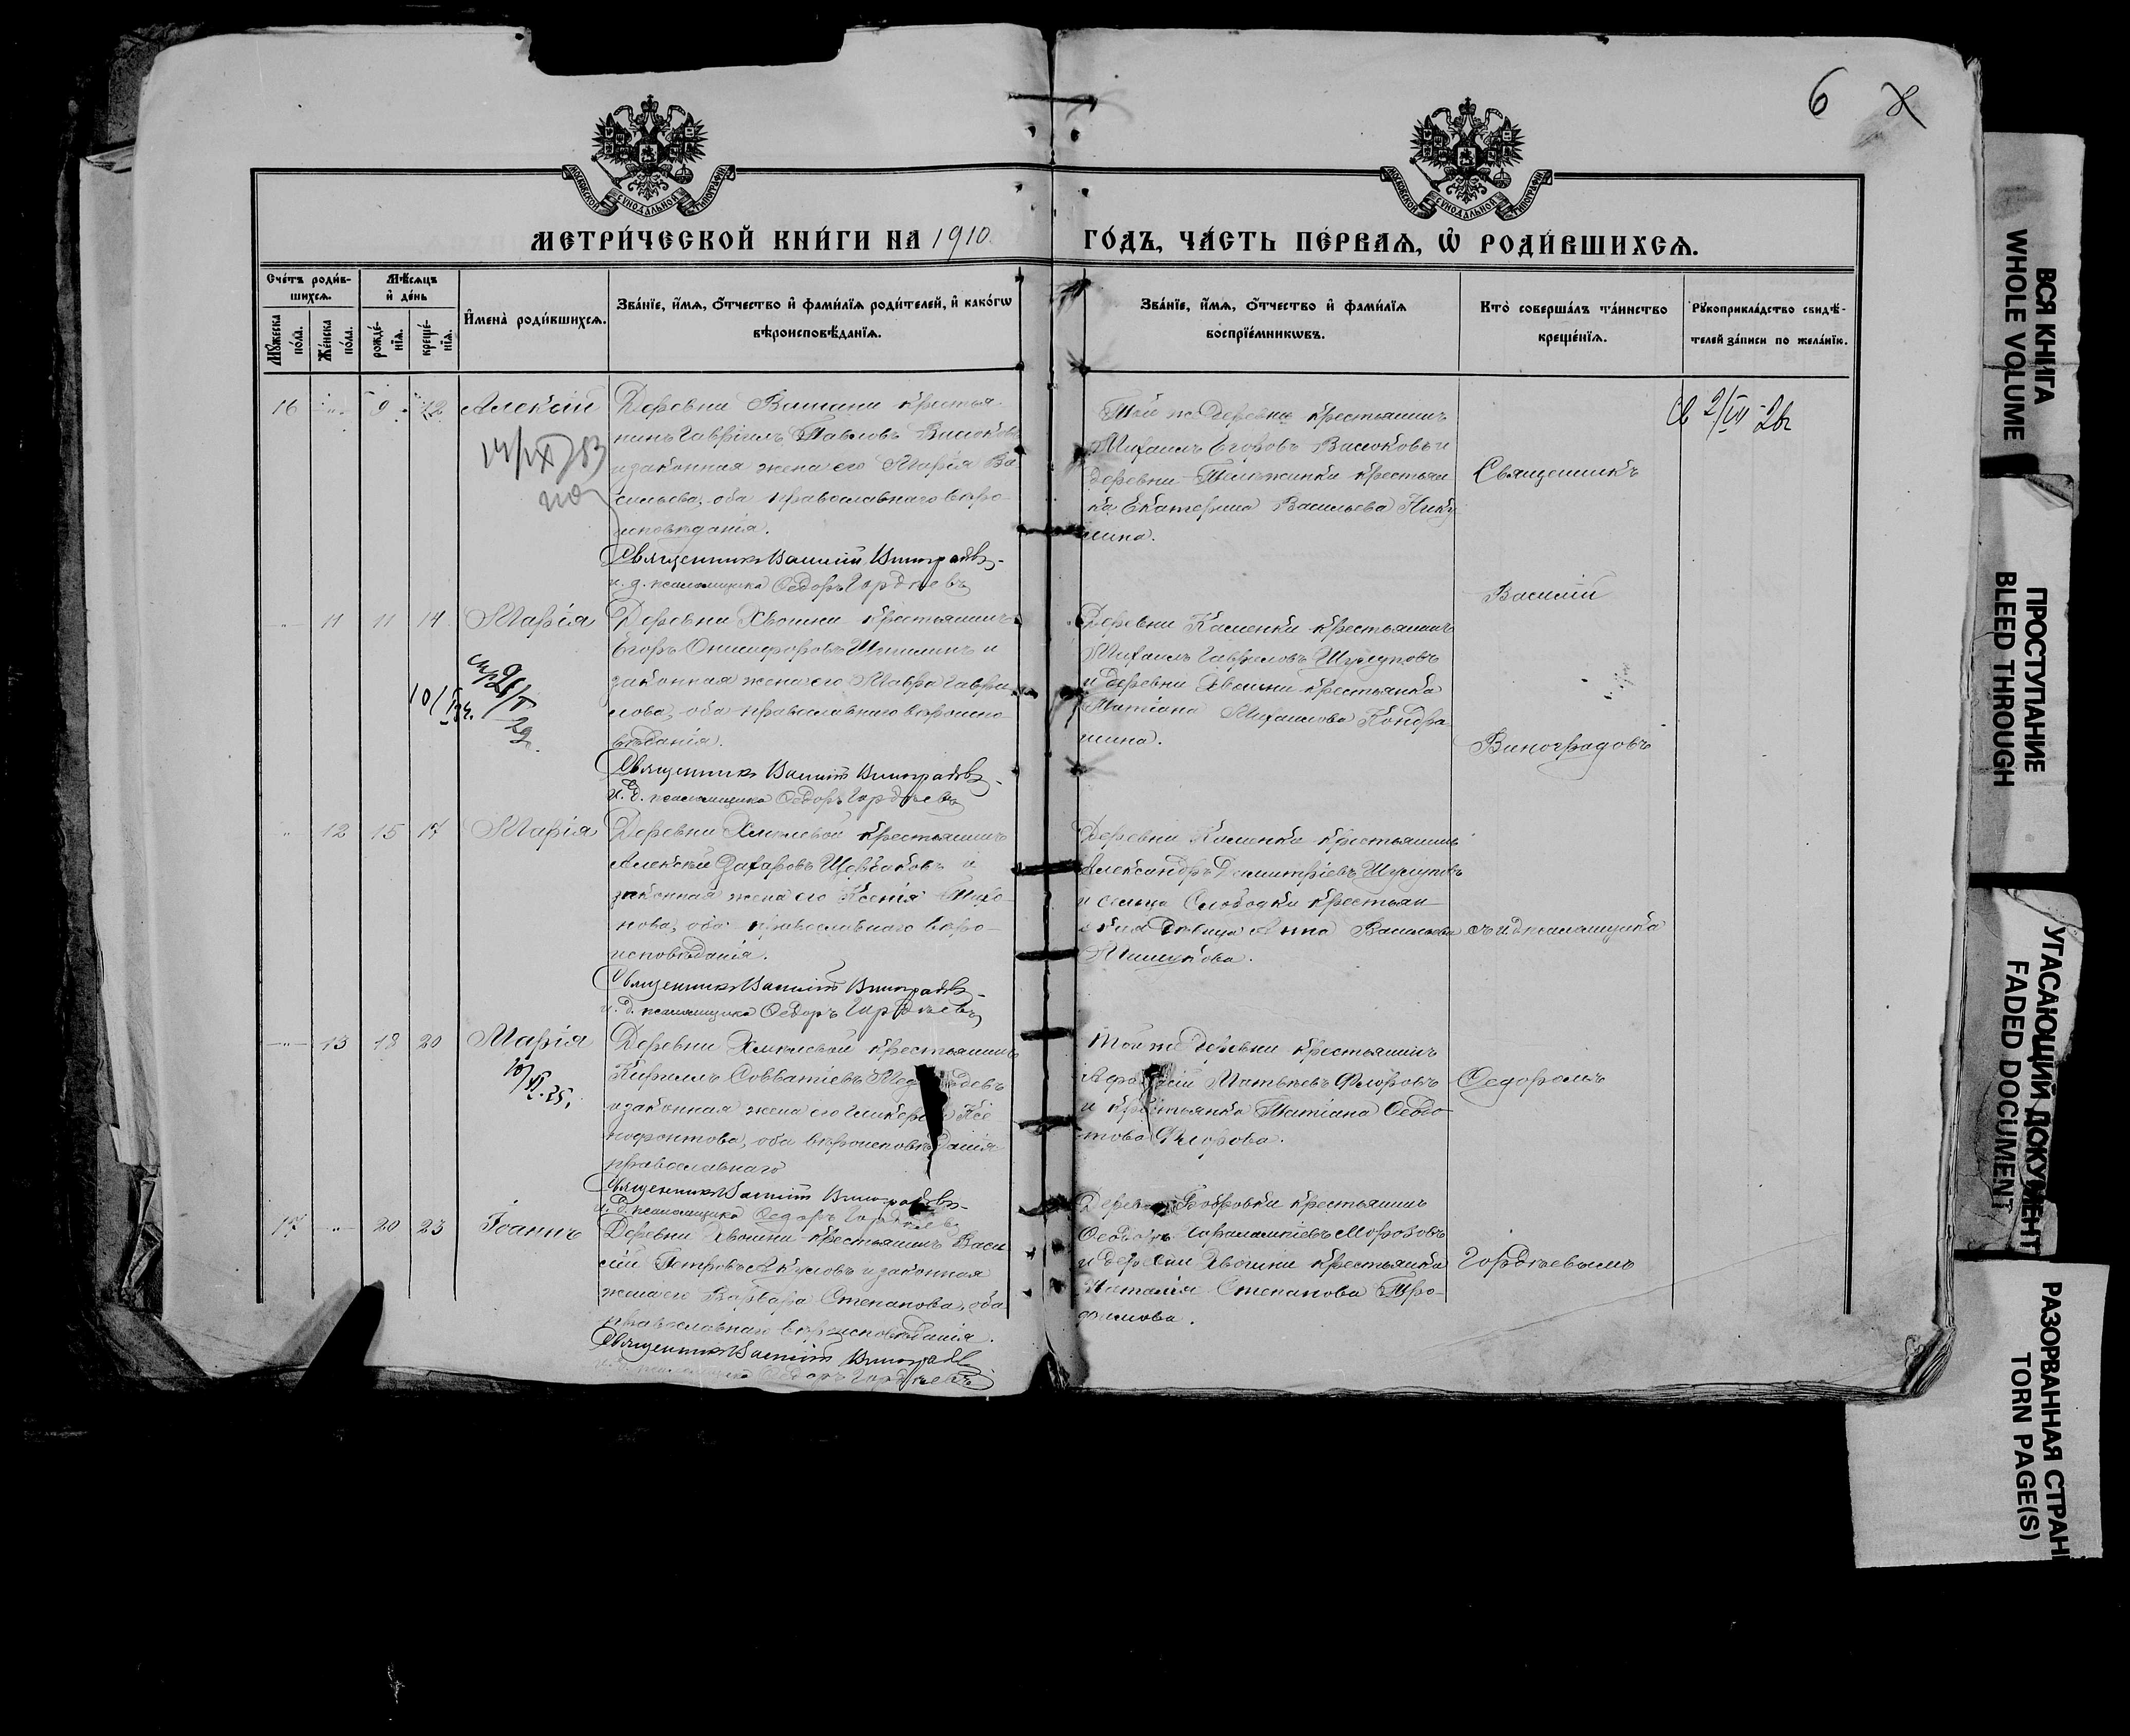 6
МОСКОВСКОЙ СѴНОДАЛЬНОЙ ТИПОГРАФІИ
МОСКОВСКОЙ СѴНОДАЛЬНОЙ ТИПОГРАФІИ
МЕТРИ́ЧЕСКОЙ КНИ́ГИ НА 1910
ГО́ДЪ, ЧА́СТЬ ПЕ́РВАѦ, Ѽ РОДИ́ВШИХСѦ.
Сче́тъ роди́в-
шихсѧ.
Мꙋ́жеска
по́ла.
Же́нска
по́ла.
Мѣ́сѧцъ
и҆ де́нь
рожде́-
нїѧ.
креще́-
нїѧ.
И҆мена̀ роди́вшихсѧ.
Зва́нїе, и҆́мѧ, ѻ҆́тчество и҆ фами́лїѧ роди́телей, и҆ како́гѡ
вѣроисповѣ́данїѧ.
Зва́нїе, и҆́мѧ, ѻ҆́тчество и҆ фами́лїѧ
воспрїе́мникѡвъ.
Кто̀ соверша́лъ та́инство
креще́нїѧ.
Рꙋкоприкла́дство свидѣ́-
телей за́писи по жела́нїю.
16 " 9 12 Алексій
Деревни крестья-
нинъ Гавріилъ Павловъ Васюковъ
и законная жена его Марія Ва-
сильева, оба православнаго веро-
исповѣданія.
Священникъ Василій Виноградовъ
и. д. псаломщика Ѳеодоръ Гордѣевъ
Той же деревни крестьянинъ
Михаилъ Егоровъ Васюковъ и
деревни крестьян
ка Екатерина Васильева Нику
шина.
Священникъ
" 11 11 14 Марія
Деревни Хвощни крестьянинъ
Егоръ Онисифоровъ и
законная жена его Мавра Гаври
лова, оба православнаго вероиспо
вѣданія.
Священникъ Василій Виноградовъ
и. д. псаломщика Ѳеодоръ Гордѣевъ
Деревни Каменки крестьянинъ
Михаилъ Гавриловъ Шуклуповъ
и деревни Хвощни крестьянка
Татіана Михаилова Кондра
шина.
Василій
Виноградовъ
" 12 15 17 Марія
Деревни крестьянинъ
Алексѣй Захаровъ Щербаковъ и
законная жена его Ксенія Тихо-
нова, оба православнаго веро-
исповѣданія.
Священникъ Василій Виноградовъ
и. д. псаломщика Ѳеодоръ Гордѣевъ
Деревни Каменки крестьянинъ
Александръ Димитріевъ
и сельца Слободки крестьян
ская дѣвица Анна Васильева
съ и. д. псаломщика
" 13 18 20 Марія
Деревни крестьянинъ
Кириллъ Савватіевъ
и законная жена его Гликерія Ксе
нофонтова, оба вероисповѣданія
православнаго
Священникъ Василій Виноградовъ
и. д. псаломщика Ѳеодоръ Гордѣевъ
Той же деревни крестьянинъ
Матвѣевъ Флоровъ
и крестьянка Татіана Ѳедо-
това Флорова.
Ѳеодоромъ
17 " 20 23 Іоаннъ
Деревни Хвощни крестьянинъ Васи
лій Петровъ Акуловъ и законная
жена его Варвара Степанова, оба
православнаго вероисповѣданія.
Священникъ Василій Виноградовъ
Ѳеодоръ Гордѣевъ
Деревни Бобровки крестьянинъ
Ѳеодоръ Харалампіевъ Морозовъ
и деревни Хвощни крестьянка
Наталія Степанова Тро-
фимова.
Гордѣевымъ
ВСЯ КНИГА
WHOLE VOLUME
ПРОСТУПАНИЕ
BLEED THROUGH
УГАСАЮЩИЙ ДОКУМЕНТ
FADED DOCUMENT
РАЗОРВАННАЯ СТРАН
TORN PAGE(S)